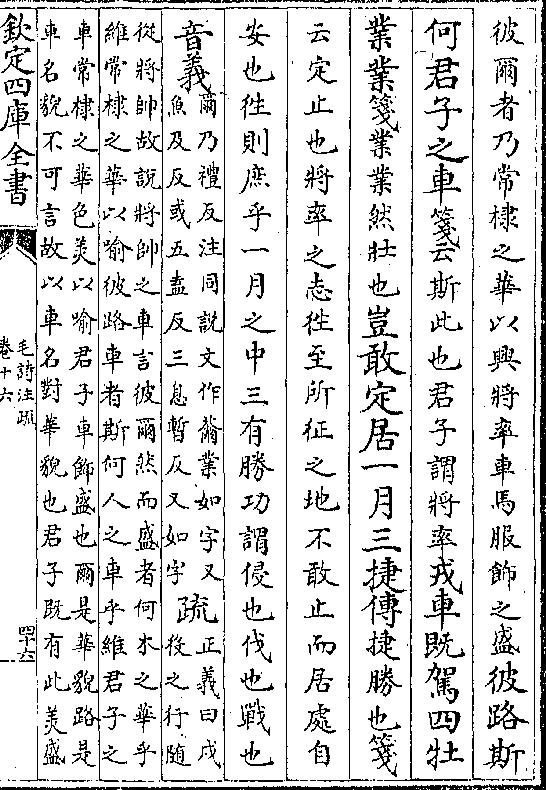 彼爾者乃常棣之華以興將率車馬服飾之盛彼路斯
何君子之車箋云斯此也君子謂將率戎車既駕四牡
業業箋業業然壯也豈敢定居一月三捷傳捷勝也箋
云定止也將率之志徃至所征之地不敢止而居處自
安也徃則庶乎一月之中三有勝功謂侵也伐也戰也
音義爾乃禮反注同説文作薾業如字又
魚及反或五盍反三息暫反又如字疏正義曰戍
役之行隨
從將帥故説將帥之車言彼爾然而盛者何木之華乎
維常棣之華以喻彼路車者斯何人之車乎維君子之
車常棣之華色美以喻君子車飾盛也爾是華貌路是
車名貌不可言故以車名對華貌也君子既有此美盛
欽定四庫全書
毛詩注疏
卷十六